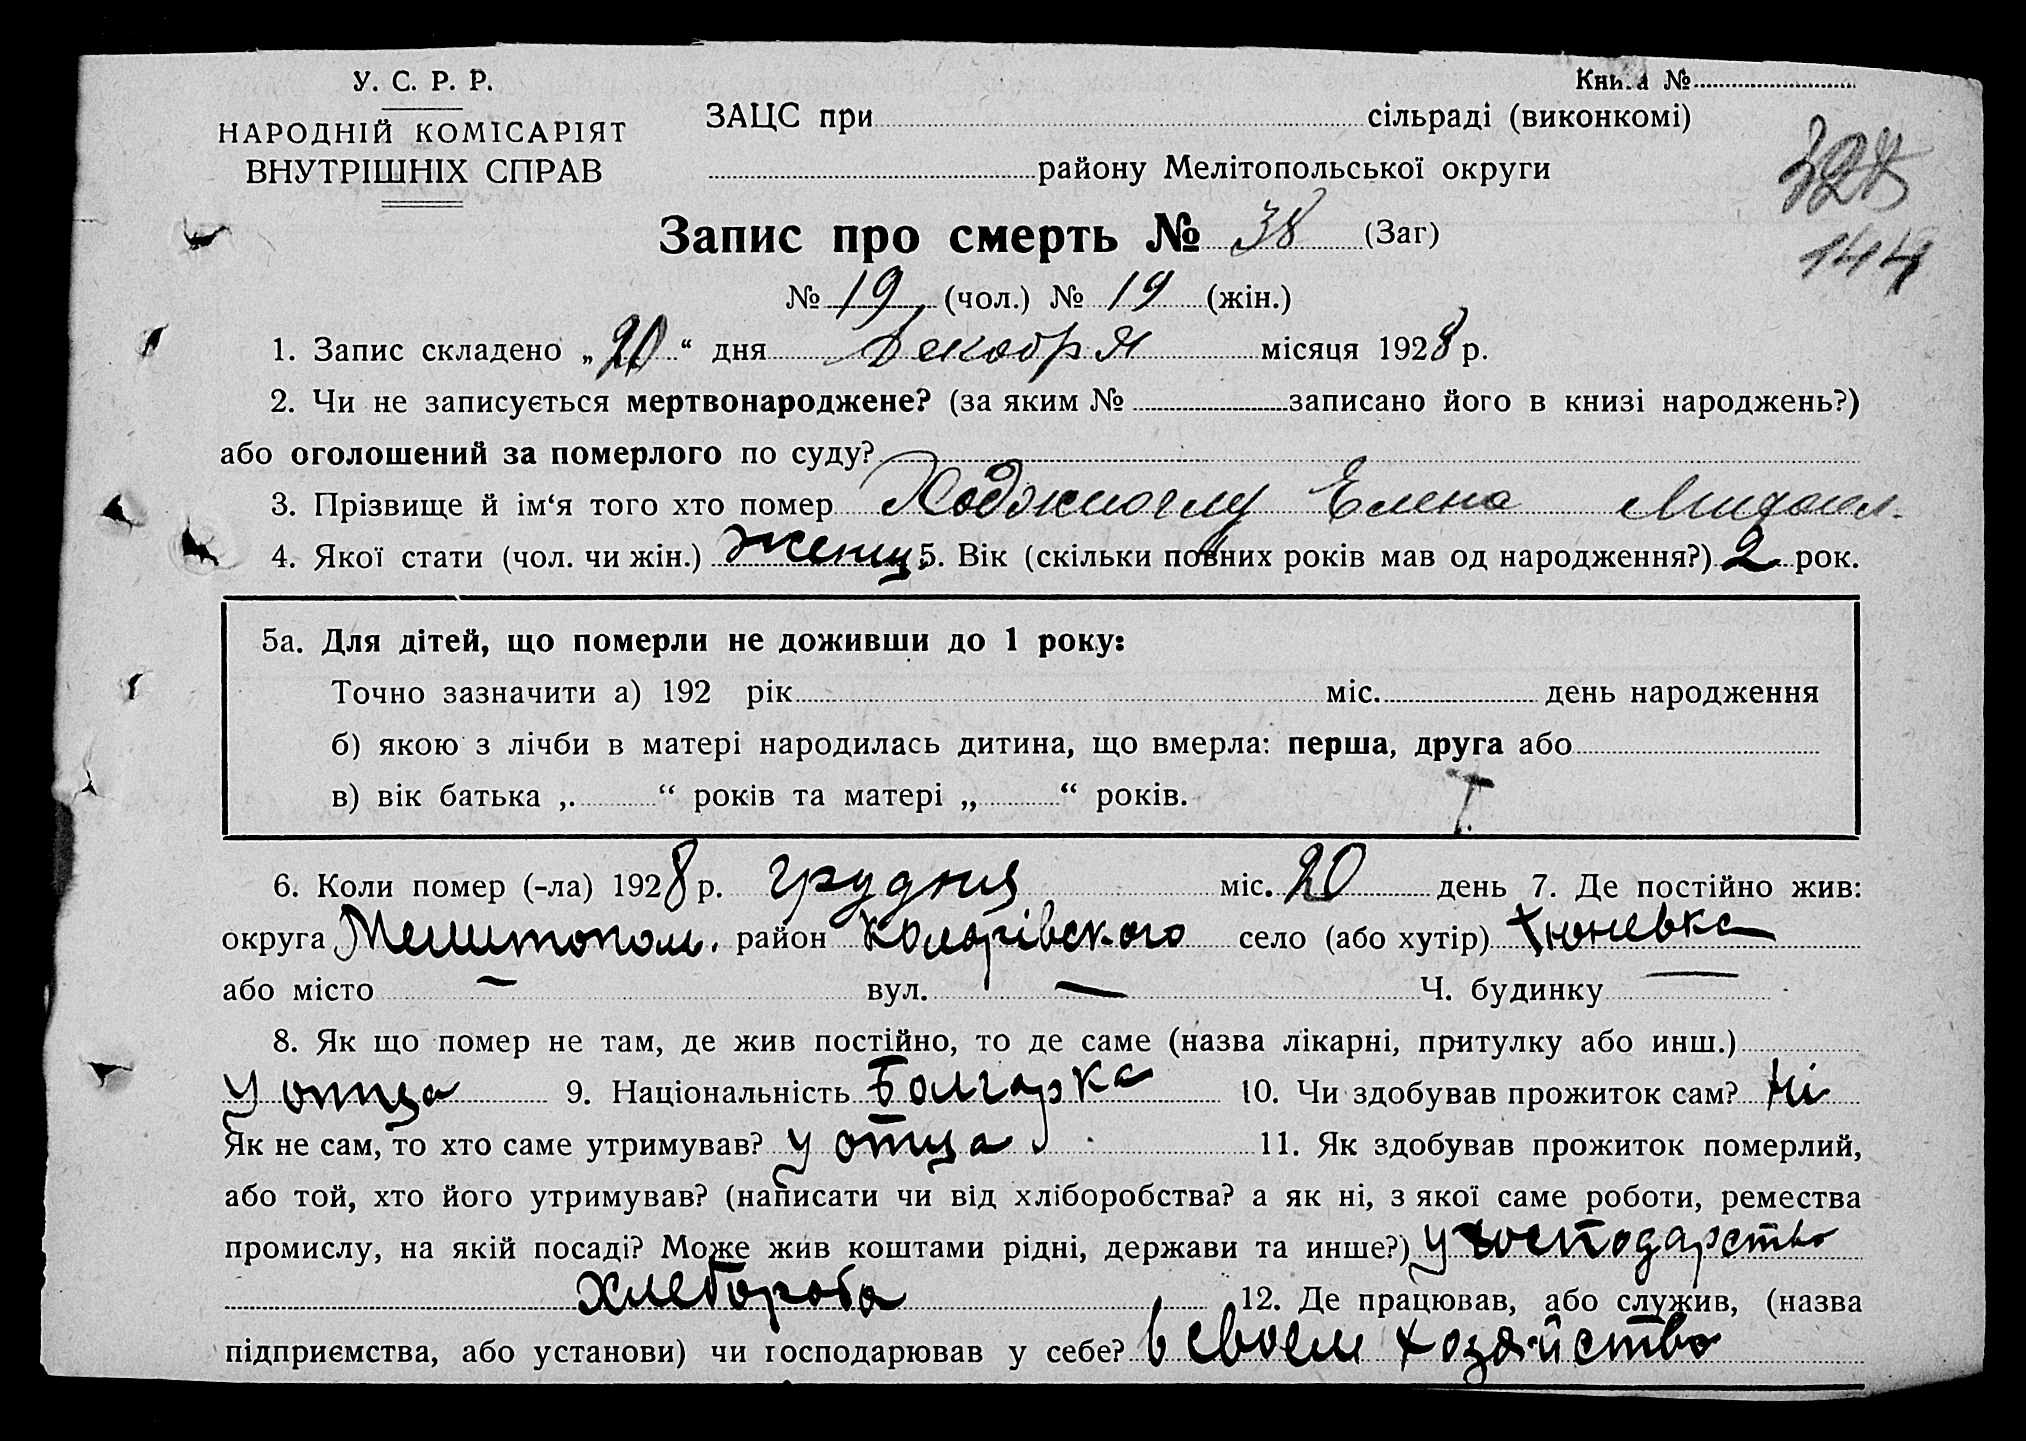 У. С. Р. Р.
НАРОДНІЙ КОМІСАРІЯТ
ВНУТРІШНІХ СПРАВ
Книга №
ЗАЦС при сільраді (виконкомі)
району Мелітопольської округи
144
Запис про смерть № 38 (Заг)
№ 19 (чол.) № 19 (жін.)
1. Запис складено „20“ дня Декабря місяця 1928 р.
2. Чи не записується мертвонароджене? (за яким № записано його в книзі народжень?)
або оголошений за померлого по суду?
3. Прізвище й ім‘я того хто помер Ходжиоглу Елена Михаил.
4. Якої стати (чол. чи жін.) женщ. 5. Вік (скільки повних років мав од народження?) 2 рок.
5а. Для дітей, що померли не доживши до 1 року:
Точно зазначити а) 192 рік міс. день народження
б) якою з лічби в матері народилась дитина, що вмерла: перша, друга або
в) вік батька „ “ років та матері „ “ років.
6. Коли помер (-ла) 1928 р. грудня міс. 20 день 7. Де постійно жив:
округа Мелитополь. район Коларівского село (або хутір) Гюневка
або місто — вул. — Ч. будинку —
8. Як що помер не там, де жив постійно, то де саме (назва лікарні, притулку або инш.)
у отца 9. Національність Болгарка 10. Чи здобував прожиток сам? Ні
Як не сам, то хто саме утримував? у отца 11. Як здобував прожиток померлий,
або той, хто його утримував? (написати чи від хліборобства? а як ні, з якої саме роботи, ремества
промислу, на якій посаді? Може жив коштами рідні, держави та инше?) у господарство
хлебороба 12. Де працював, або служив, (назва
підприємства, або установи) чи господарював у себе? в своем хозяйство